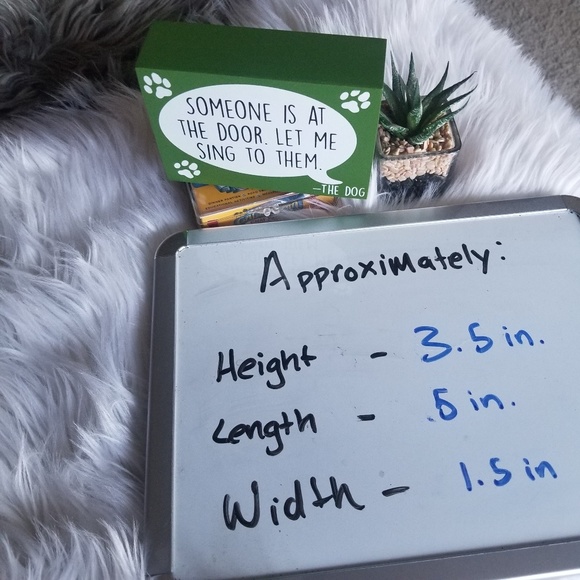 SOMEONE IS AT
THE DOOR. LET ME
SING TO THEM.
—THE DOG
Approximately:
Height - 3.5 in.
Length - 5 in.
Width - 1.5 in